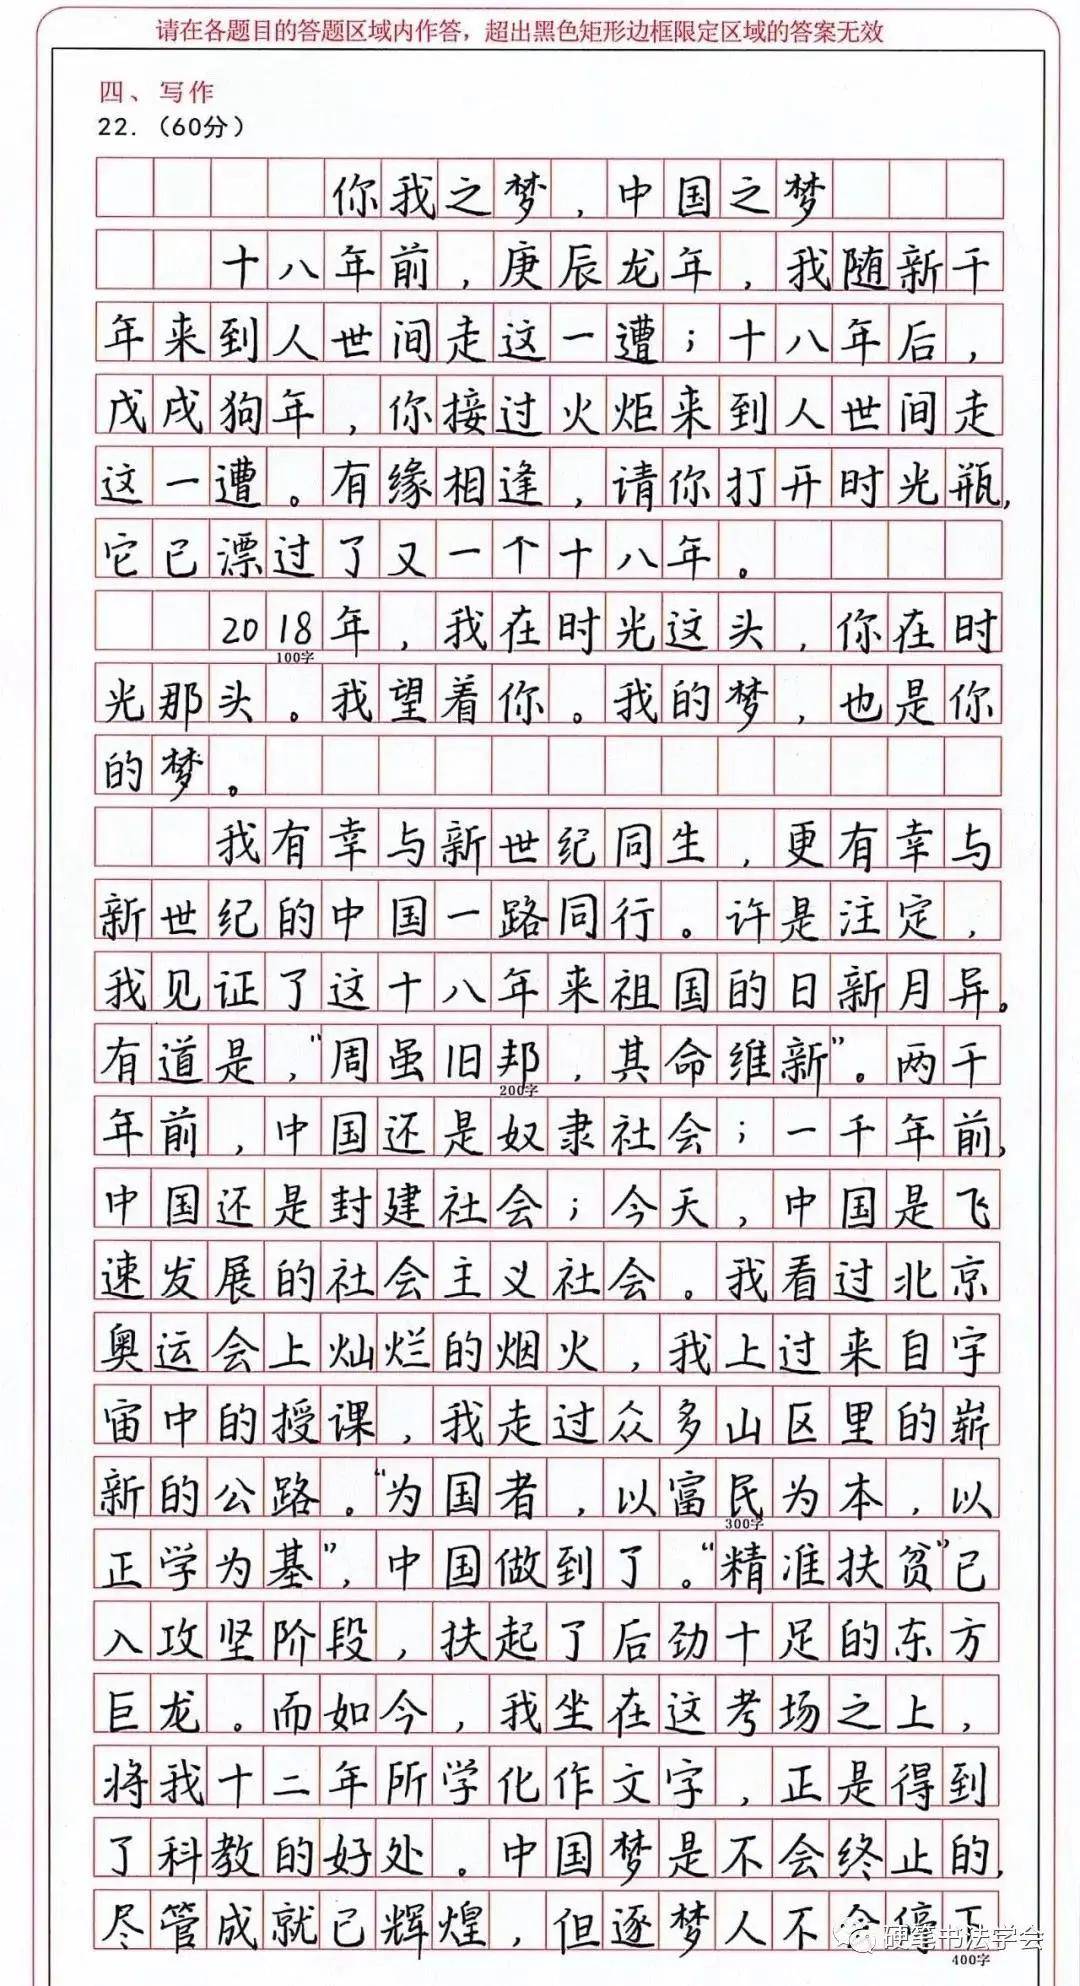 请在各题目的答题区域内作答，超出黑色矩形边框限定区域的答案无效
四、写作
22.（60分）
你我之梦，中国之梦
十八年前，庚辰龙年，我随新千
年来到人世间走这一遭；十八年后，
戊戌狗年，你接过火炬来到人世间走
这一遭。有缘相逢，请你打开时光瓶，
它已漂过了又一个十八年。
2018年，我在时光这头，你在时
100字
光那头。我望着你。我的梦，也是你
的梦。
我有幸与新世纪同生，更有幸与
新世纪的中国一路同行。许是注定，
我见证了这十八年来祖国的日新月异。
有道是，“周虽旧邦，其命维新”。两千
200字
年前，中国还是奴隶社会；一千年前，
中国还是封建社会；今天，中国是飞
速发展的社会主义社会。我看过北京
奥运会上灿烂的烟火，我上过来自宇
宙中的授课，我走过众多山区里的崭
新的公路。“为国者，以富民为本，以
300字
正学为基”，中国做到了。“精准扶贫”已
入攻坚阶段，扶起了后劲十足的东方
巨龙。而如今，我坐在这考场之上，
将我十二年所学化作文字，正是得到
了科教的好处。中国梦是不会终止的，
尽管成就已辉煌，但逐梦人不会停下
400字
硬笔书法学会